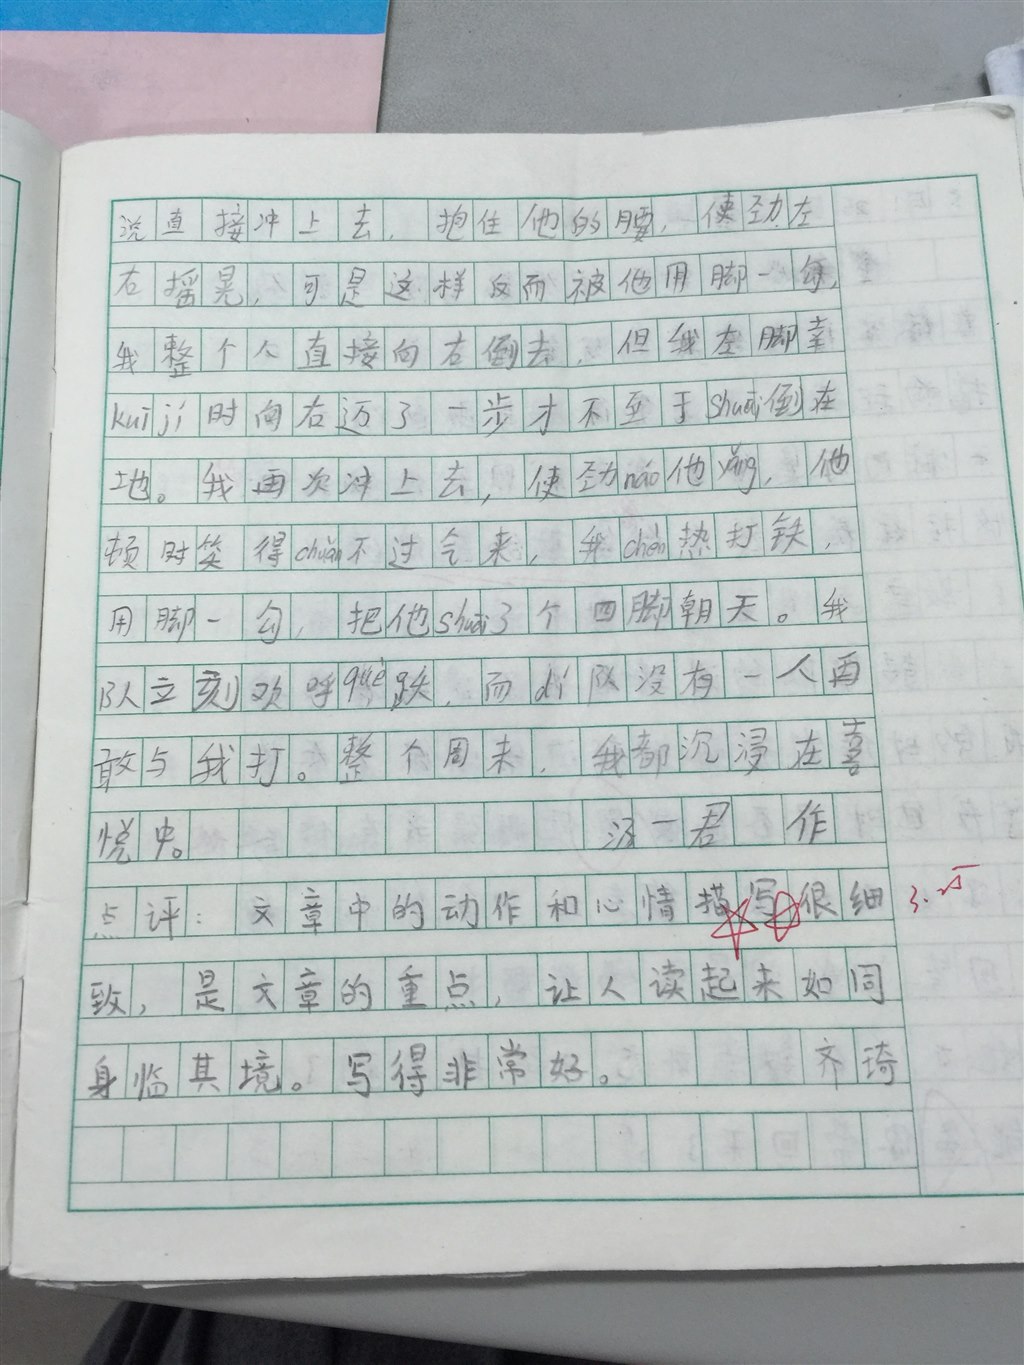 说直接冲上去，抱住他的腰，使劲左
右摇晃，可是这样反而被他用脚一勾，
我整个人直接向右倒去，但我左脚幸
kuī jí时向右迈了一步才不至于shuāi倒在
地。我再次冲上去，使劲náo他yǎng，他
顿时笑得chuǎn不过气来，我chèn热打铁，
用脚一勾，把他shuāi了个四脚朝天。我
队立刻欢呼què跃，而dí队没有一人再
敢与我打。整个周末，我都沉浸在喜
悦中。 一君 作
点评：文章中的动作和心情描写很细
致，是文章的重点，让人读起来如同
身临其境。写得非常好。 齐琦